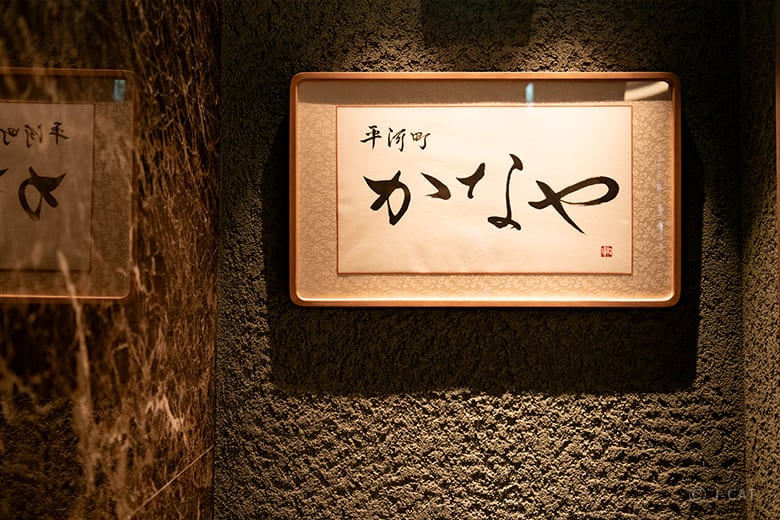 平河町
かなや
© J.CAT